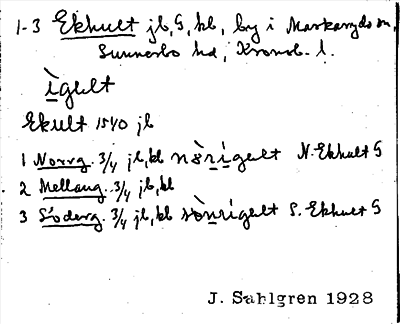 1-3 Ekhult jb, G, kb, by i Markaryds sn,
Sunnerbo hd, Kronob. l.
ìgult
Ekult 1540 jb
1 Norrg. 3/4 jb, kb nòrigult N. Ekhult G
2 Mellang. 3/4 jb, kb
3 Söderg. 3/4 jb, kb sònrigult S. Ekhult G
J. Sahlgren 1928